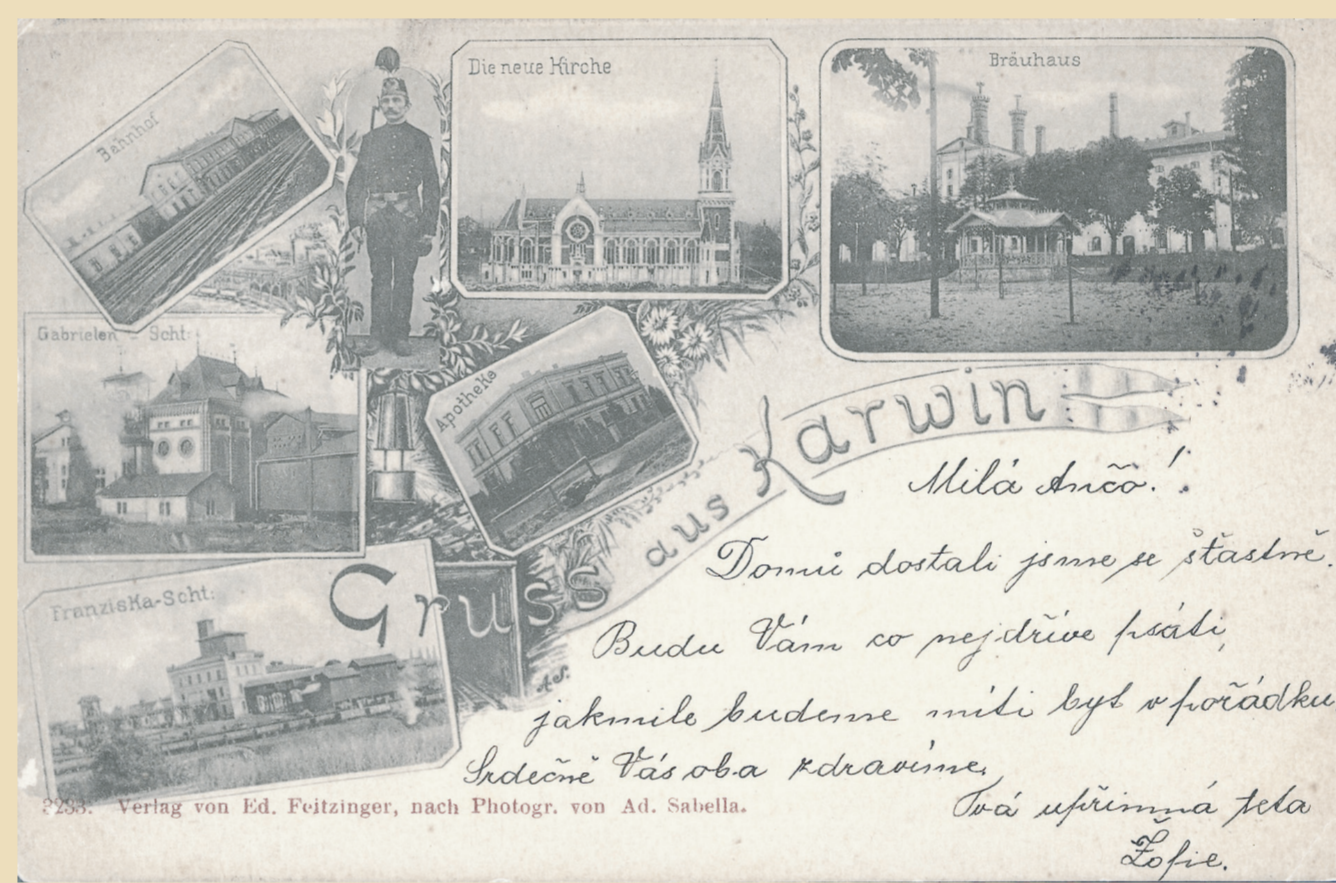 Bahnhof
Die neue Kirche
Bräuhaus
Gabrielen - Scht:
Apotheke
Franziska-Scht:
Gruss aus Karwin
A.S.
Milá Ančo!
Domů dostali jsme se šťastně.
Budu Vám co nejdříve psáti,
jakmile budeme míti byt v pořádku
Srdečně Vás oba zdravíme,
Tvá upřímná teta
Žofie.
2233. Verlag von Ed. Feitzinger, nach Photogr. von Ad. Sabella.